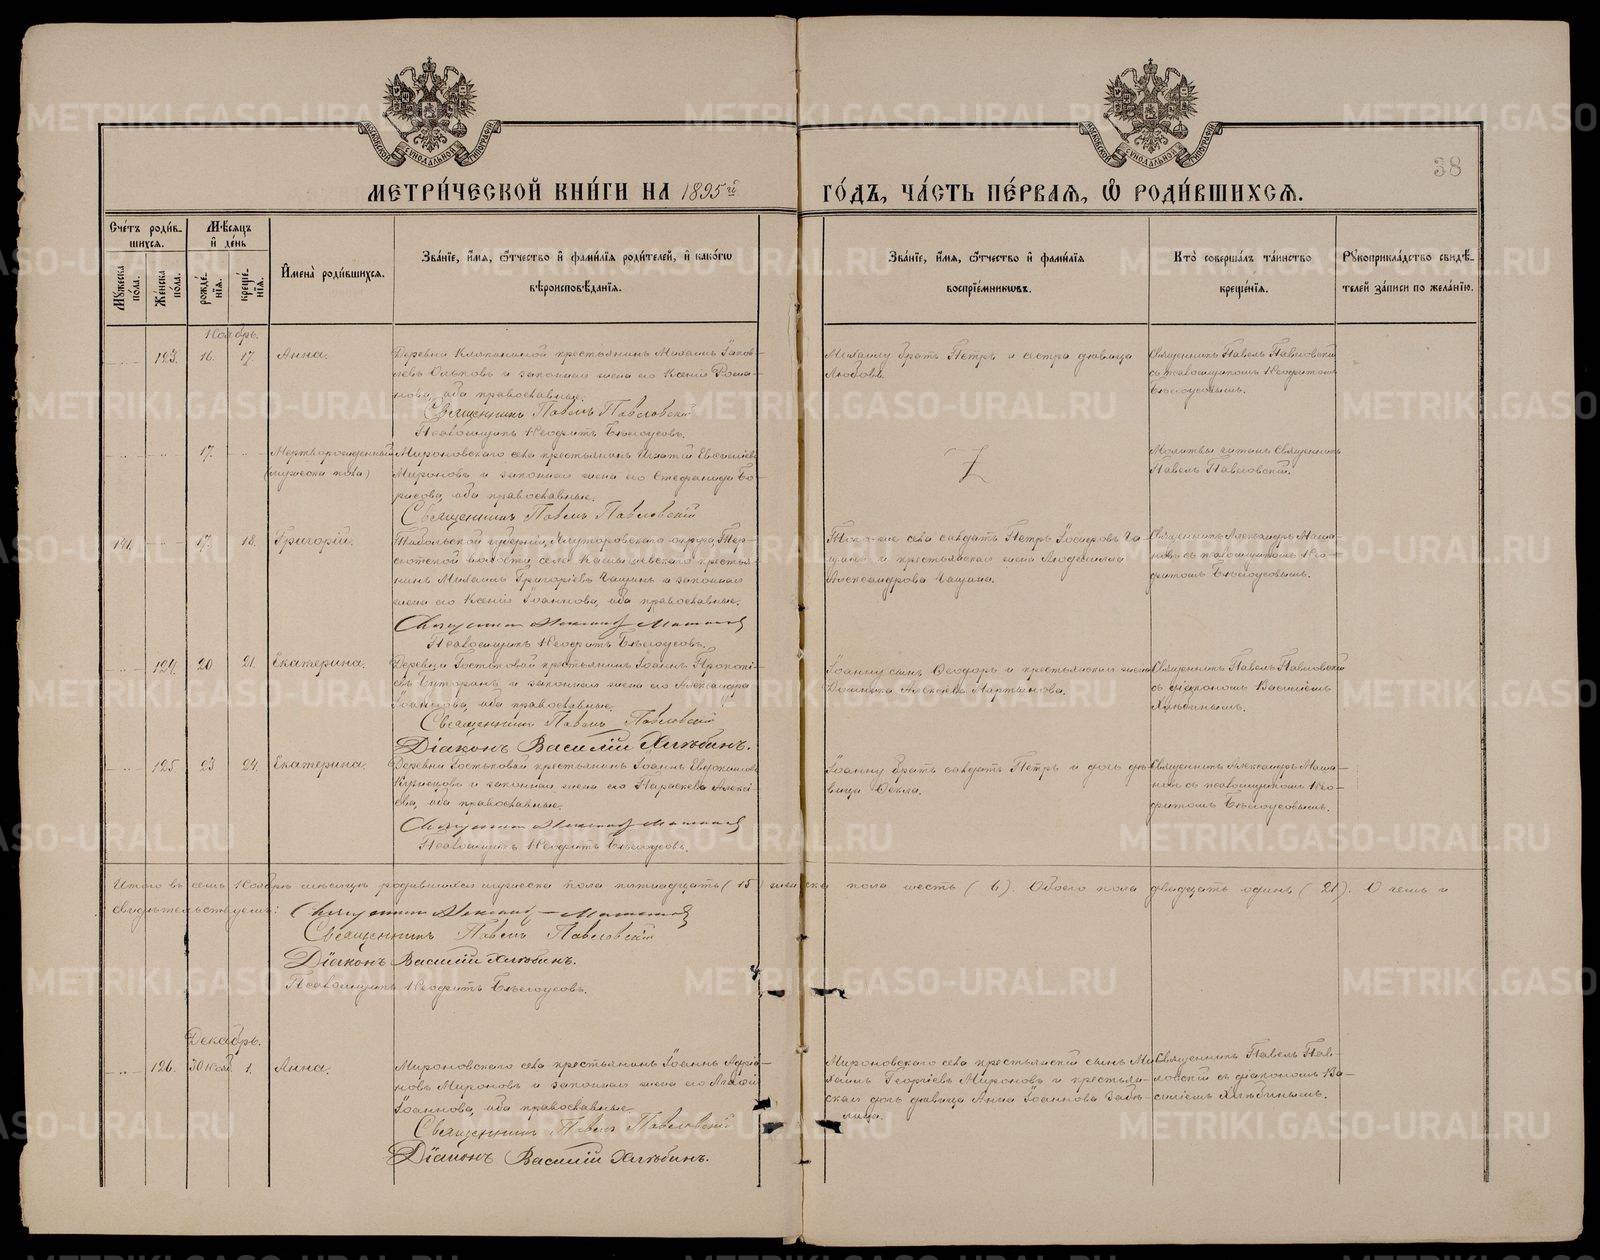 МОСКОВСКОЙ СѴНОДАЛЬНОЙ ТИПОГРАФІИ
МОСКОВСКОЙ СѴНОДАЛЬНОЙ ТИПОГРАФІИ
38
МЕТРИ́ЧЕСКОЙ КНИ́ГИ НА 1895й ГО́ДЪ, ЧА́СТЬ ПЕ́РВАЯ, Ѡ҆ РОДИ́ВШИХСЯ.
Сче́тъ роди́в-
шихся.
Мѣ́сяцъ
и҆ де́нь
Мꙋжеска по́ла.
Же́нска по́ла.
рожде́нїя.
креще́нїя.
И҆мена̀ роди́вшихся.
Зва́нїе, и҆́мя, ѻ҆́тчество и҆ фами́лїя роди́телей, и҆ како́гѡ
вѣроисповѣ́данїя.
Зва́нїе, и҆́мя, ѻ҆́тчество и҆ фами́лїя
воспрїе́мникѡвъ.
Кто̀ соверша́лъ та́инство
креще́нїя.
Рꙋкоприкла́дство свидѣ́-
телей за́писи по жела́нїю.
Ноябрь.
123. 16. 17. Анна.
Деревни крестьянинъ Михаилъ Іаков-
левъ и законная жена его Ксенія Рома-
нова, оба православные.
Священникъ Павелъ Павловскій
Псаломщикъ Неофитъ Бѣлоусовъ.
Михаилу братъ Петръ и сестра дѣвица
Любовь.
Священникъ Павелъ Павловскій
съ псаломщикомъ Неофитомъ
Бѣлоусовымъ.
17. Мертворожденный
(мужеска пола)
Мироновскаго села крестьянинъ Игнатій
Мироновъ и законная жена его Стефанида Бо-
рисова, оба православные.
Священникъ Павелъ Павловскій
Z
Молитвы читалъ Священникъ
Павелъ Павловскій.
141. 17. 18. Григорій.
Тобольской губерніи, Ялуторовскаго округа, Тер-
сютской волости села крестья-
нинъ Михаилъ Григорьевъ и законная
жена его Ксенія Іоаннова, оба православные.
Священникъ Александръ
Псаломщикъ Неофитъ Бѣлоусовъ.
села солдатъ Петръ Іосифовъ
и крестьянская жена Людмила
Александрова
Священникъ Александръ
съ псаломщикомъ Нео-
фитомъ Бѣлоусовымъ.
124. 20 21. Екатерина.
Деревни Гостьковой крестьянинъ Іоаннъ Прокопі-
евъ и законная жена его Александра
Іоаннова, оба православные.
Священникъ Павелъ Павловскій
Діаконъ Василій Хлѣбинъ.
Іоанну сынъ Ѳеодоръ и крестьянская жена
Домника Алексѣева Мартынова.
Священникъ Павелъ Павловскій
съ діакономъ Василіемъ
Хлѣбинымъ.
125. 23 24. Екатерина.
Деревни Гостьковой крестьянинъ Іоаннъ Евдокимовъ
Кузнецовъ и законная жена его Параскева Алексі-
ева, оба православные.
Священникъ Александръ
Псаломщикъ Неофитъ Бѣлоусовъ.
Іоанну братъ солдатъ Петръ и дочь дѣ-
вица Ѳекла.
Священникъ Александръ
съ псаломщикомъ Нео-
фитомъ Бѣлоусовымъ.
Итого въ семъ Ноябрѣ мѣсяцѣ родившихся мужеска пола пятнадцать (15) женска пола шесть (6). Обоего пола двадцать одинъ (21). О чемъ и
свидѣтельствуемъ: Священникъ Александръ
Священникъ Павелъ Павловскій
Діаконъ Василій Хлѣбинъ.
Псаломщикъ Неофитъ Бѣлоусовъ.
Декабрь.
126. 30 Нояб. 1. Анна.
Мироновскаго села крестьянинъ Іоаннъ Адріа-
новъ Мироновъ и законная жена его Агафія
Іоаннова, оба православные.
Священникъ Павелъ Павловскій
Діаконъ Василій Хлѣбинъ.
Мироновскаго села крестьянскій сынъ Ми-
хаилъ Георгіевъ Мироновъ и крестьян-
ская дочь дѣвица Анна Іоаннова
Священникъ Павелъ Пав-
ловскій съ діакономъ Ва-
силіемъ Хлѣбинымъ.
METRIKI.GASO-URAL.RU